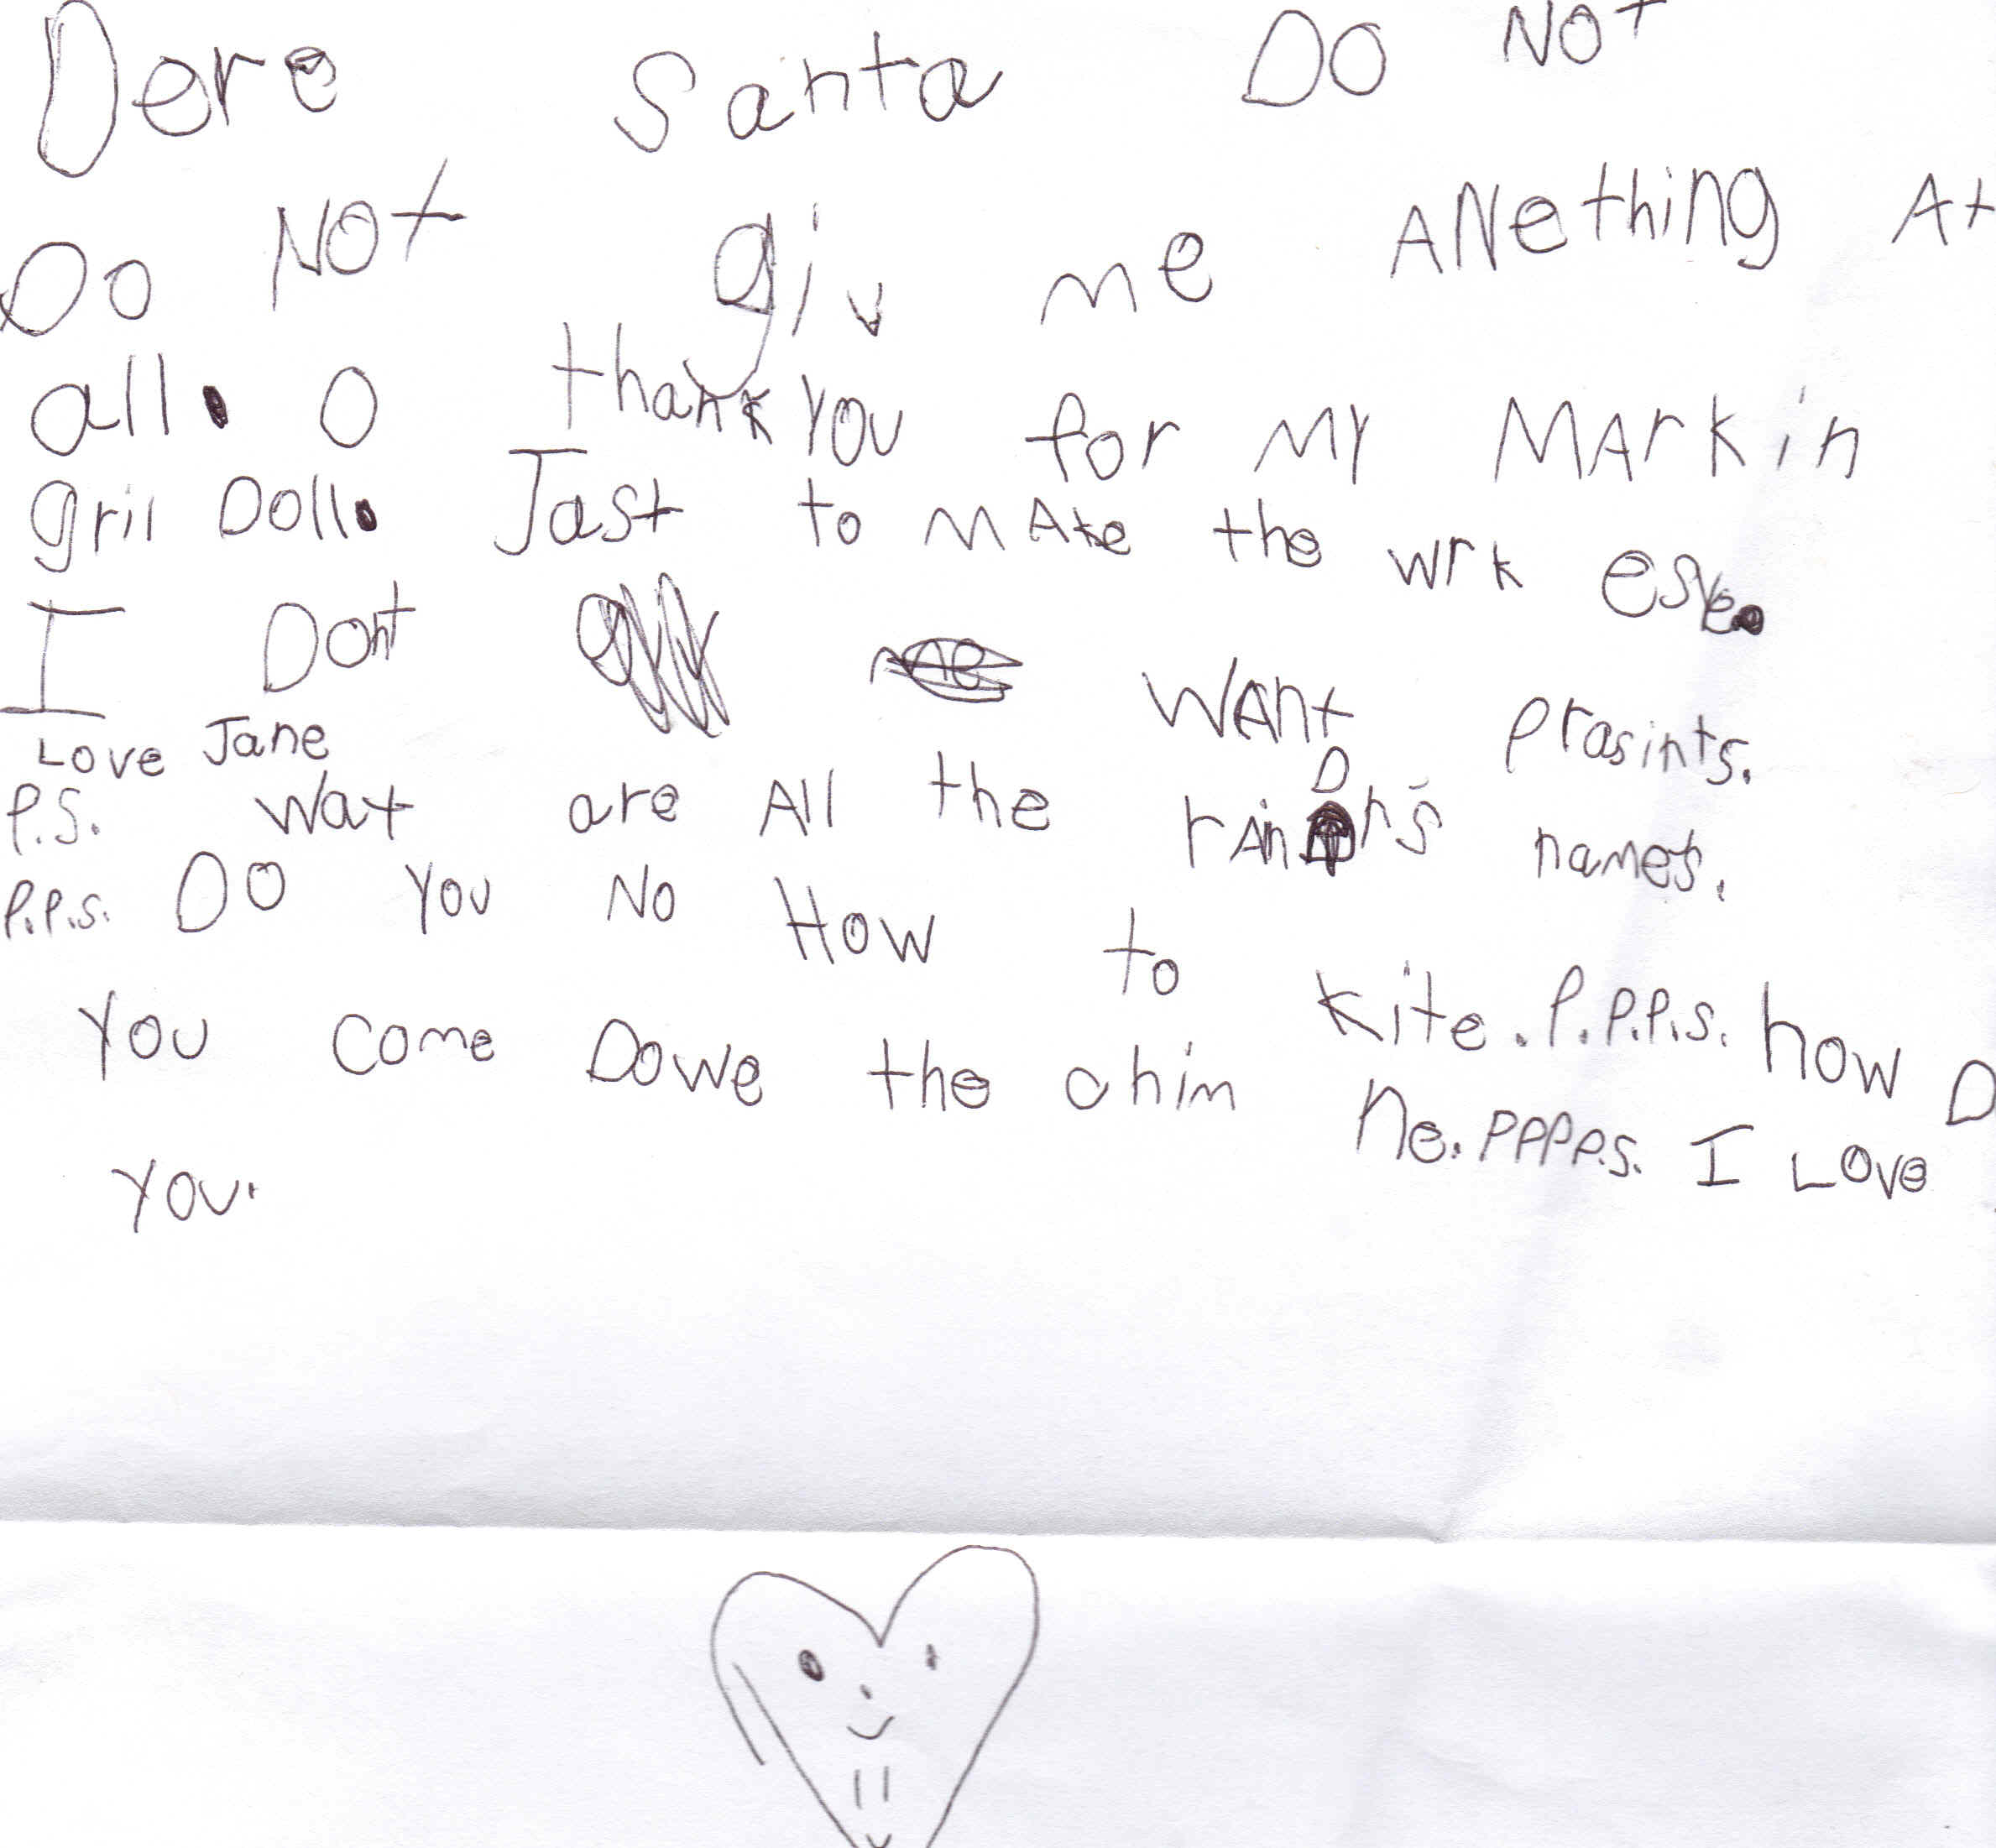 Dere Santa DO NOt
DO NOt giv me ANething At
all. O thank you for MY MArkin
gril Doll. Jast to MAke the wrk esye.
I Dont WAnt prasints.
Love Jane
P.S. Wat are All the rAinDr's names.
P.P.S. DO you NO How to kite. P.P.P.S. how D
you come Dowe the chim ne. PPPP.S. I Love
you.